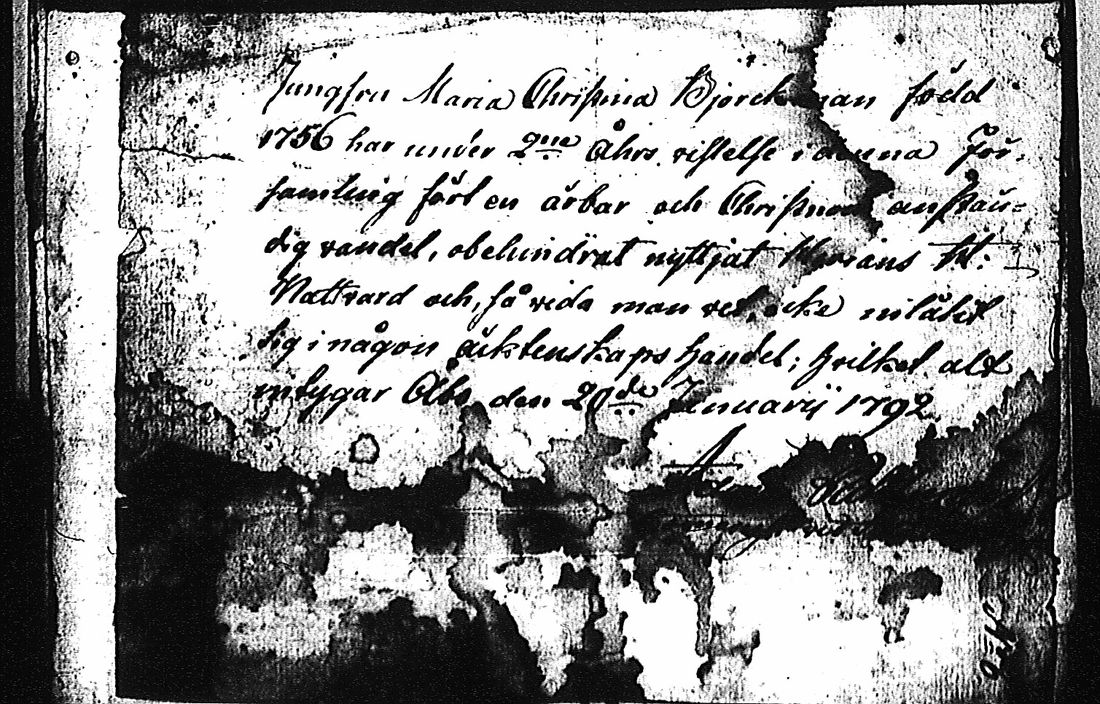 Jungfru Maria Christina Björckman född
1756 har under 2ne Åhrs vistelse i denna För-
samling fört en ärbar och Christmen anstän-
dig vandel, obehindrat nyttjat Herrans H:
Nattvard och, så vida man vet, icke inlåtit
sig i någon äcktenskaps handel; hvilket alt
intygar Åbo den 20de Januarij 1792